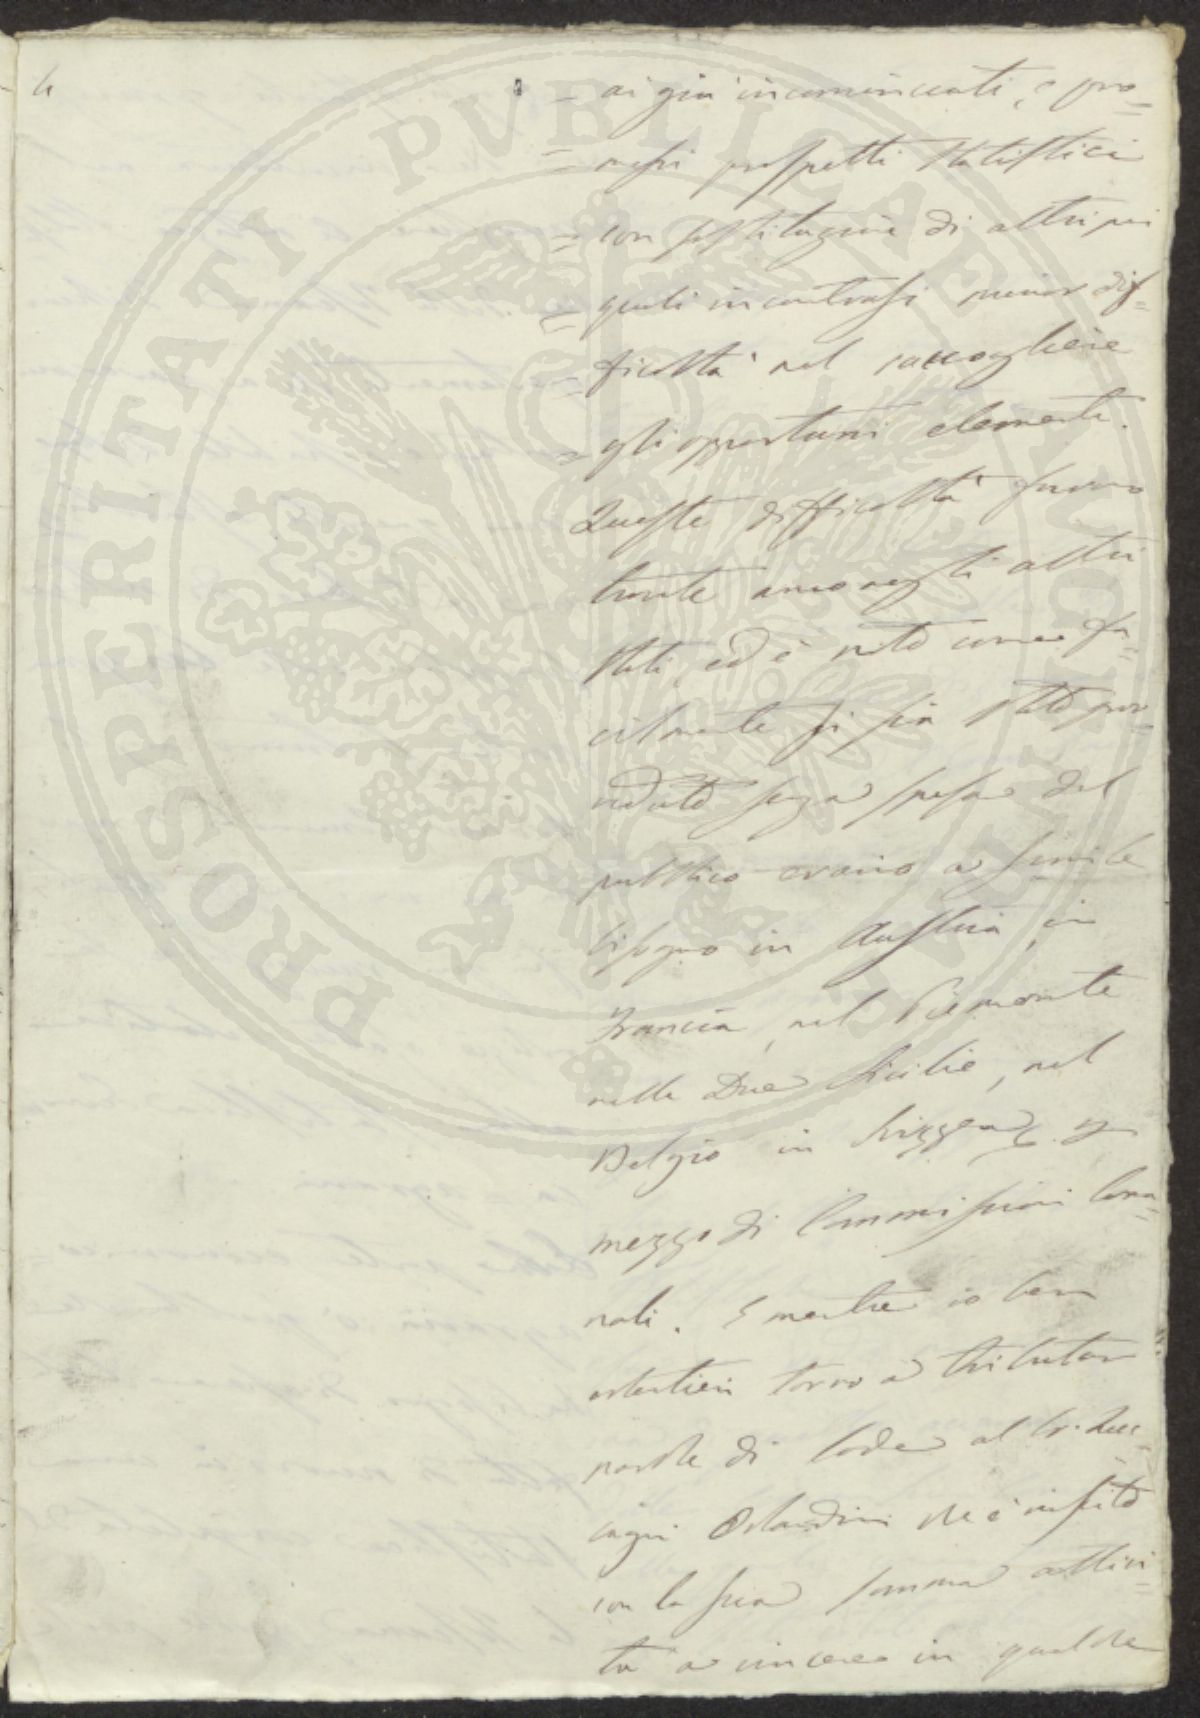 4
= ai già incominciati, e pro=
= messi prospetti statistici
= con sostituzione di altri pei
= quali incontrasi minor dif=
= ficoltà nel raccogliere
= gli opportuni elementi.
Queste difficoltà furono
trovate anco negli altri
Stati, ed è noto come fa=
cilmente si sia stato prov=
veduto senza spesa del
pubblico erario a simile
bisogno in Austria, in
Francia, nel Piemonte
nelle Due Sicilie, nel
Belgio in Svizzera
mezzo di Commissioni
nali. E mentre io ben
volentieri torno a tributar
parole di lode al
Orlandini che è riuscito
con la sua somma attivi=
tà a vincere in qualche
PROSPERITATI PVBLICAE AVGENDAE